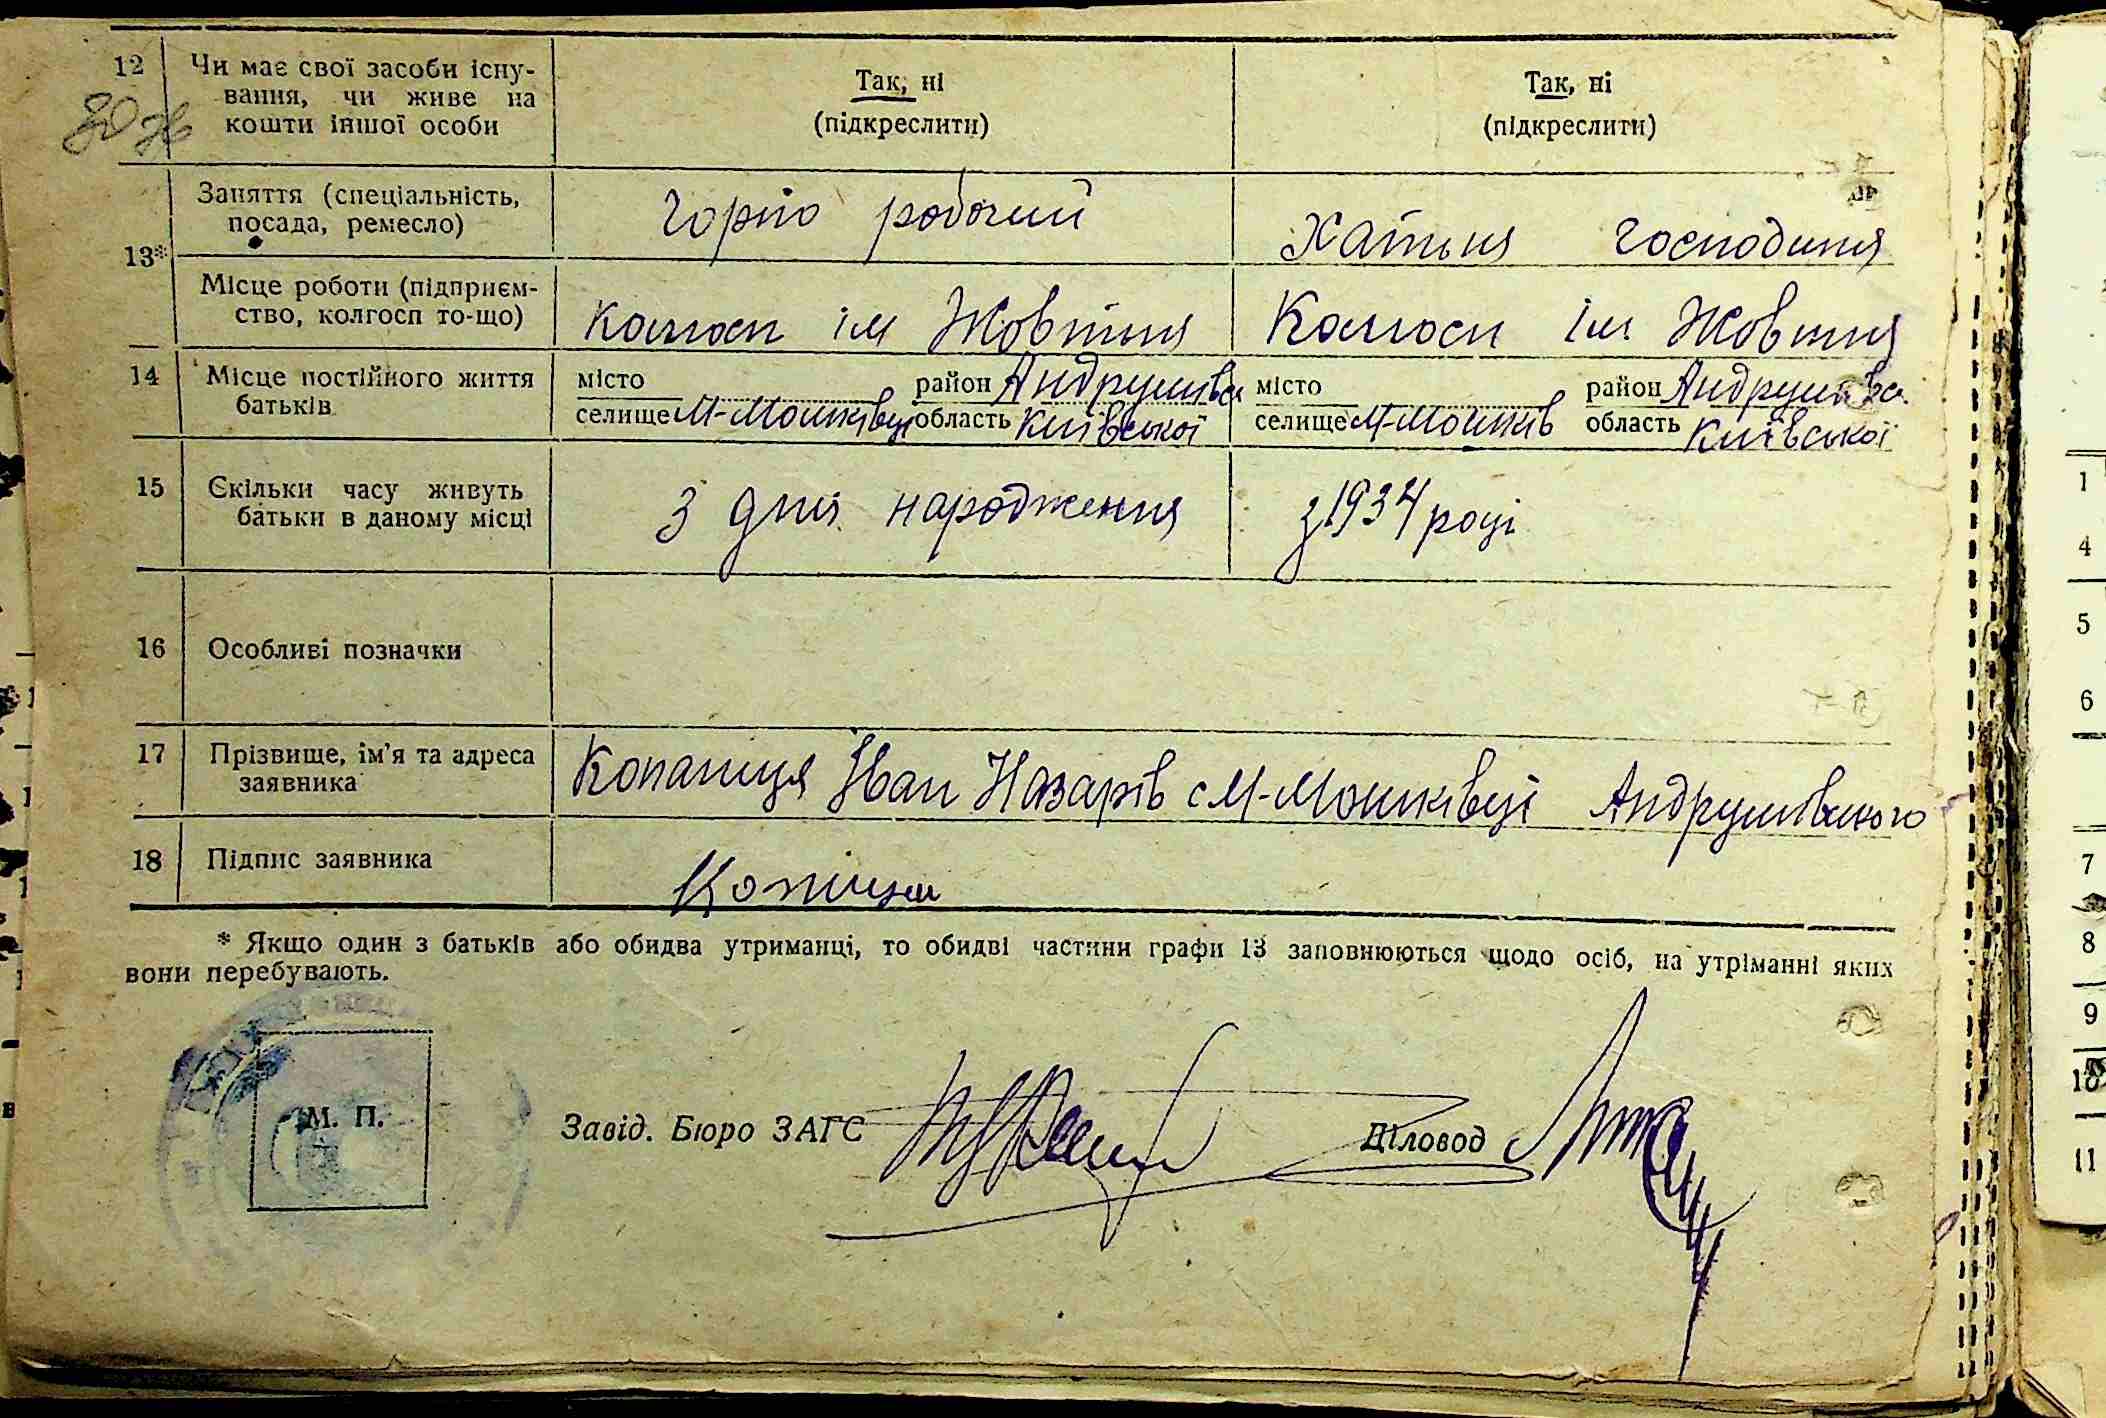 12 Чи має свої засоби існу-
вання, чи живе на
кошти іншої особи
Так, ні
(підкреслити)
Так, ні
(підкреслити)
13*
Заняття (спеціальність,
посада, ремесло)
Чорно робочий
Хатня господиня
Місце роботи (підприєм-
ство, колгосп то-що)
Колгосп ім Жовтня
Колгосп ім. Жовтня
14 Місце постійного життя
батьків
місто район Андрушівс
селище М-Мошківці область Київської
місто район Андрушівс.
селище М-Мошків область Київської
15 Скільки часу живуть
батьки в даному місці
З дня народження
з 1934 році
16 Особливі позначки
17 Прізвище, ім'я та адреса
заявника
Копаниця Іван Назарів с М-Мошківці Андрушівського
18 Підпис заявника
* Якщо один з батьків або обидва утриманці, то обидві частини графи 13 заповнюються щодо осіб, на утріманні яких
вони перебувають.
М. П.
Завід. Бюро ЗАГС
Діловод
1
4
5
6
7
8
9
10
11